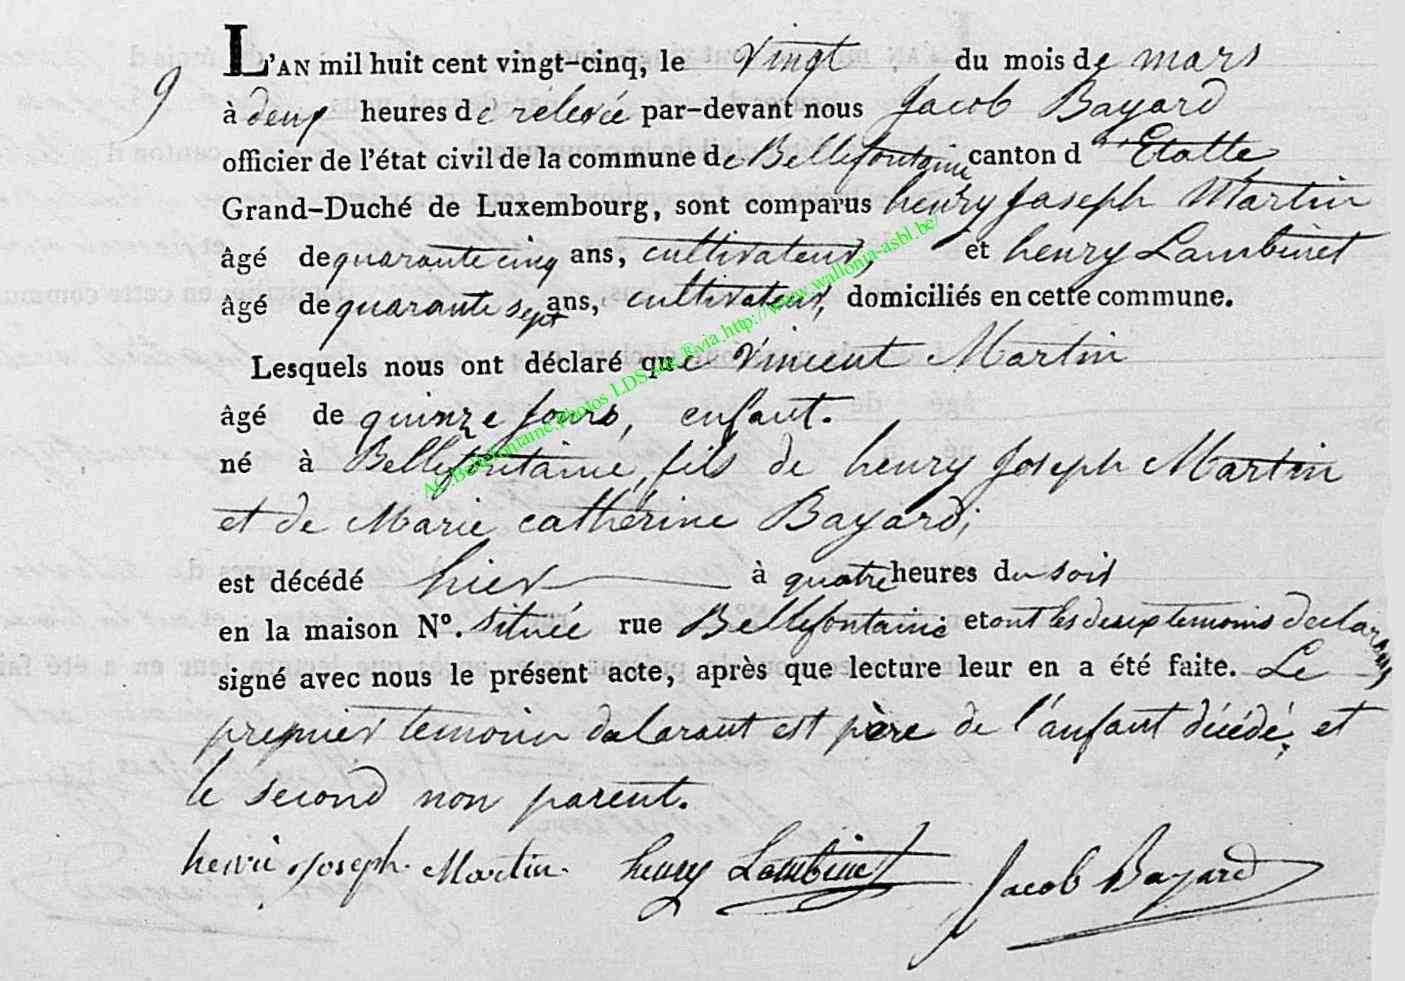 9
L'AN mil huit cent vingt-cinq, le vingt du mois de mars
à deux heures de rélevée par-devant nous Jacob Bayard
officier de l'état civil de la commune de Bellefontaine canton d'Etalle
Grand-Duché de Luxembourg, sont comparus henry joseph Martin
âgé de quarante cinq ans, cultivateur, et henry Lambinet
âgé de quarante sept ans, cultivateur, domiciliés en cette commune.
Lesquels nous ont déclaré que Vincent Martin
âgé de quinze jours, enfant.
né à Bellefontaine, fils de henry Joseph Martin
et de Marie catherine Bayard;
est décédé hier à quatre heures du soir
en la maison N°. située rue Bellefontaine et ont les deux temoins declarans
signé avec nous le présent acte, après que lecture leur en a été faite. Le
premier temoin dalarant est père de l'anfant décédé, et
le second non parent.
henri Joseph Martin. henry Lambinet Jacob Bayard
AC Bellefontaine, Photos LDS via http://www.wallonia-asbl.be/